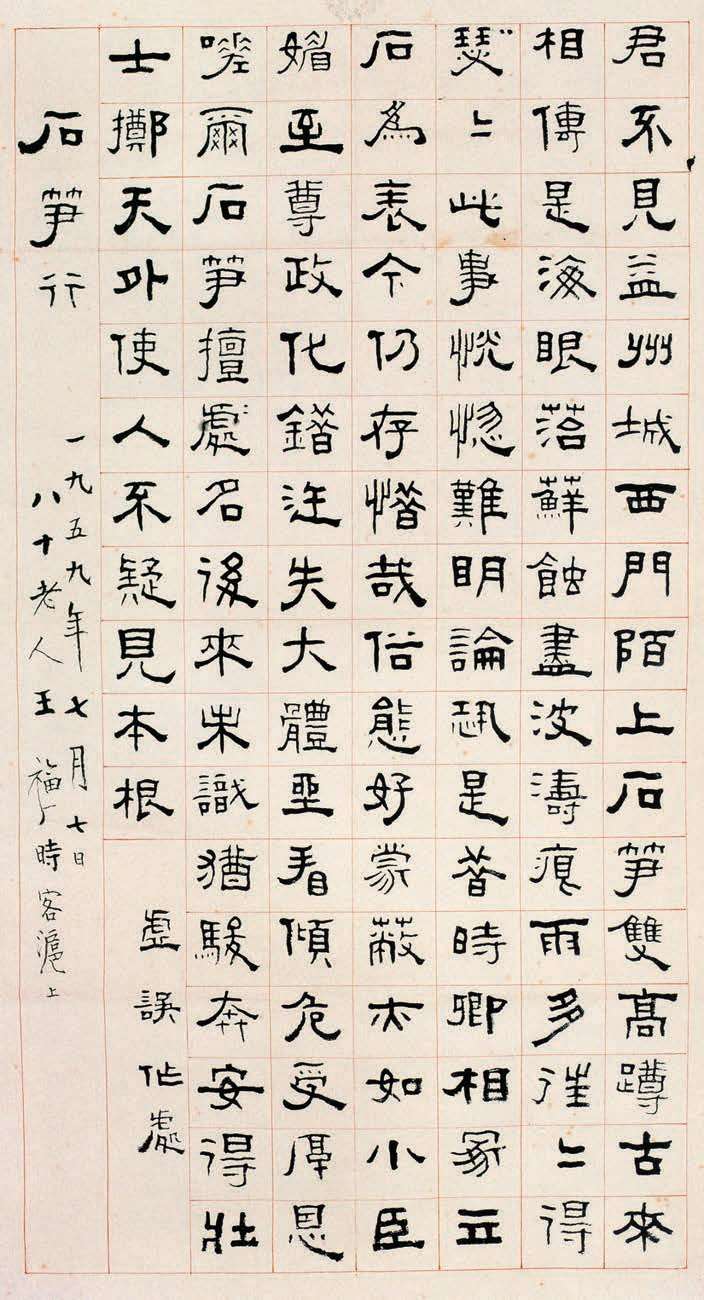 君不見益州城西門陌上石笋雙高蹲古來
相傳是海眼落蘚蝕盡波濤痕雨多往〻得
瑟〻此事恍惚難明論恐是昔時卿相冢立
石為表今仍存惜哉俗態好蒙蔽亦如小臣
媚至尊政化錯迕失大體坐看傾危受厚恩
嗟爾石笋擅處名後來未識猶駿奔安得壯
士擲天外使人不疑見本根
虛誤作處
石笋行
一九五九年七月七日
八十老人王福厂時客滬上